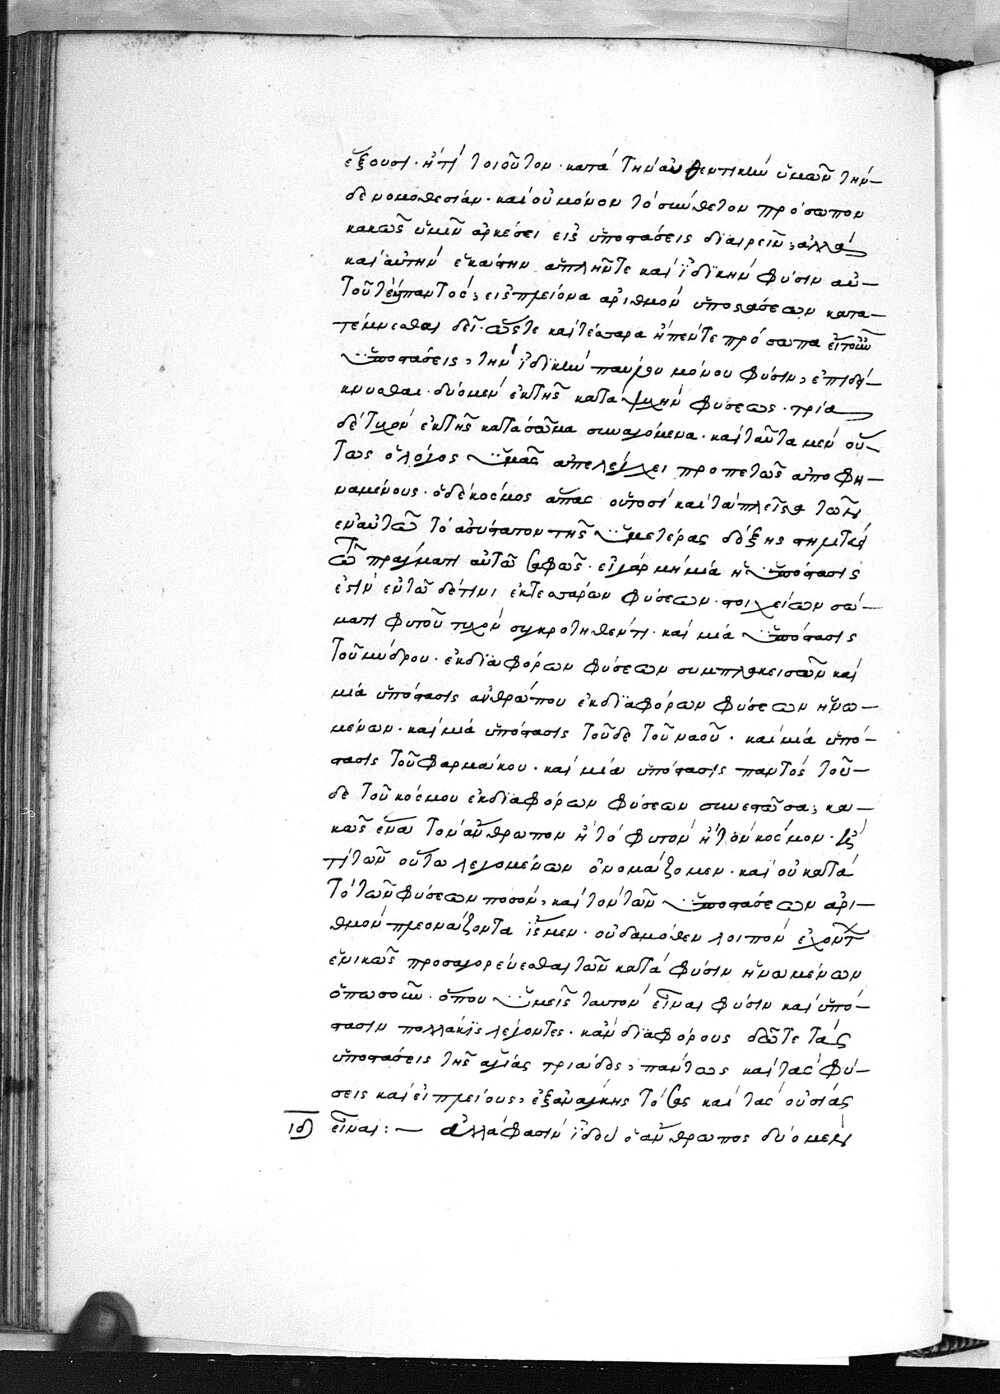 ἕξουσι· ἢ τί τοιοῦτον· κατὰ τὴν αὐθεντικὴν ὑμῶν τήν-
δε νομοθεσίαν· καὶ οὐ μόνον τὸ σύνθετον πρόσωπον
κακῶς ὑμῖν ἀρκέσει εἰς ὑποστάσεις διαιρεῖν, ἀλλὰ
καὶ αὐτὴν ἑκάστην ἁπλῆν τε καὶ ἰδικὴν φύσιν αὐ-
τοῦ τε παντός, εἰς πλείονα ἀριθμὸν ὑποστάσεων κατα-
τέμνεσθαι δεῖ· ὥστε καὶ τέσσαρα ἢ πέντε πρόσωπα εἴτουν
ὑποστάσεις, τὴν ἰδικὴν παντὸς μόνου φύσιν, ἐπιδεί-
κνυσθαι· δύο μὲν ἐκ τῆς κατὰ ψυχὴν φύσεως· τρία
δὲ τυχὸν ἐκ τῆς κατὰ σῶμα συναγόμενα· καὶ ταῦτα μὲν οὕ-
τως ὁ λόγος ὑμᾶς ἀπελέγχει προπετῶς ἀποφη-
ναμένους· ὁ δὲ κόσμος ἅπας οὑτοσὶ καὶ τὰ πλεῖστα τῶν
ἐν αὐτῷ τὸ ἀσύστατον τῆς ὑμετέρας δόξης στηλιτεύ-
ει πράγματι αὐτῷ σαφῶς· εἰ γὰρ μὴ μία ἡ ὑπόστασις
ἐστὶν ἐν τῷ δέ τινι ἐκ τεσσάρων φύσεων· στοιχείων σώ-
ματι φυτοῦ τυχὸν συγκροτηθέντι· καὶ μία ὑπόστασις
τοῦ μύδρου· ἐκ διαφόρων φύσεων συμπλακεισῶν καὶ
μία ὑπόστασις ἀνθρώπου ἐκ διαφόρων φύσεων ἡνω-
μένων· καὶ μία ὑπόστασις τοῦδε τοῦ ναοῦ· καὶ μία ὑπό-
στασις τοῦ φαρμάκου· καὶ μία ὑπόστασις παντὸς τοῦ-
δε τοῦ κόσμου ἐκ διαφόρων φύσεων συνεστῶσα, κα-
κῶς ἕνα τὸν ἄνθρωπον ἢ τὸ φυτὸν ἢ τὸν κόσμον·
τι τῶν οὕτω λεγομένων ὀνομάζομεν· καὶ οὐ κατὰ
τὸ τῶν φύσεων ποσόν, καὶ τὸν τῶν ὑποστάσεων ἀρι-
θμὸν πλεονάζοντα ἴσμεν· οὐδαμόθεν λοιπὸν ἔχοντ
ἑνικῶς προσαγορεύεσθαι τῶν κατὰ φύσιν ἡνωμένων
ὁπωσοῦν· ὅπου ὑμεῖς ταυτὸν εἶναι φύσιν καὶ ὑπό-
στασιν πολλάκις λέγοντες· κἂν διαφόρους δῶτε τὰς
ὑποστάσεις τῆς ἁγίας τριάδος, πάντως καὶ τὰς φύ-
σεις καὶ εἰ πλείους, ἐξ ἀνάγκης τὸ ὡς καὶ τὰς οὐσίας
ιδ εἶναι: — ἀλλά φασιν ἰδοὺ ὁ ἄνθρωπος δύο μὲν